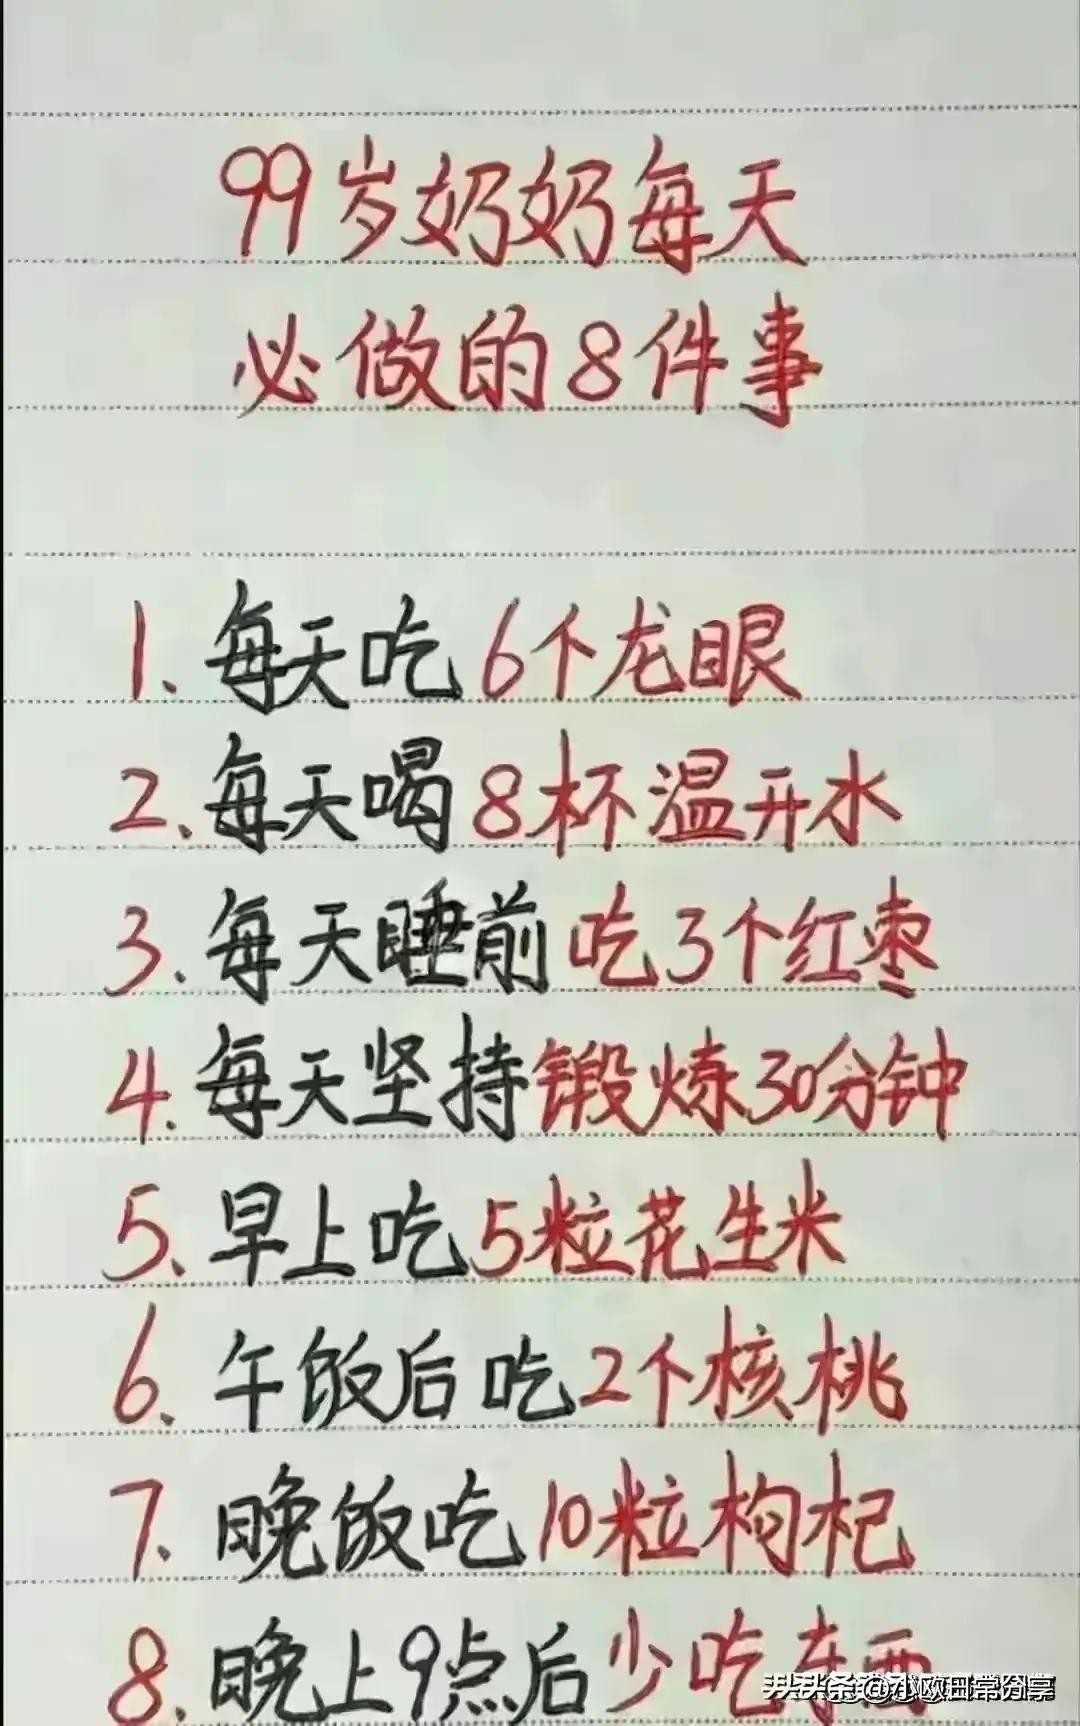 99岁奶奶每天
必做的8件事
1、每天吃6个龙眼
2、每天喝8杯温开水
3、每天睡前吃3个红枣
4、每天坚持锻炼30分钟
5、早上吃5粒花生米
6、午饭后吃2个核桃
7、晚饭吃10粒枸杞
8、晚上9点后少吃东西
头条@小欧日常分享